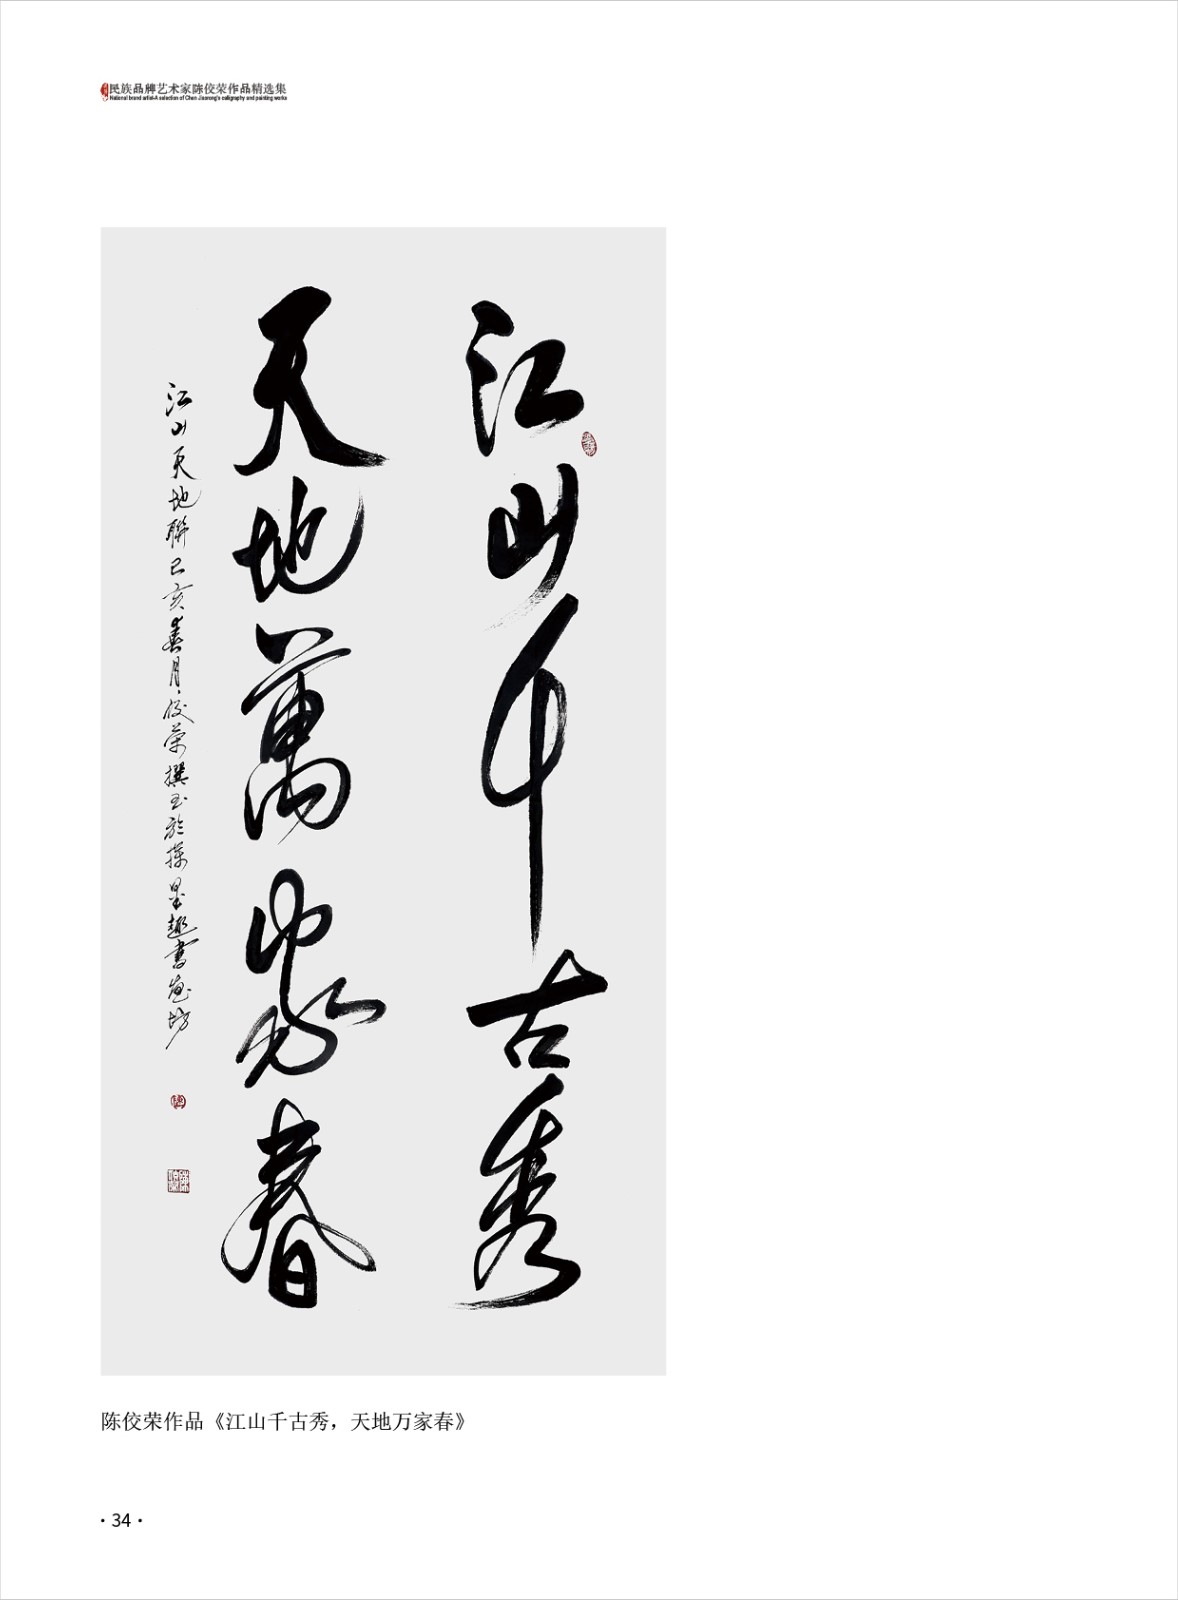 民族品牌艺术家陈佼荣作品精选集
National brand artist-A selection of Chen Jiaorong's calligraphy and painting works
江山千古秀
天地萬家春
江山天地聯己亥春月佼荣撰书於探墨趣書画坊
陈佼荣作品《江山千古秀，天地万家春》
·34·